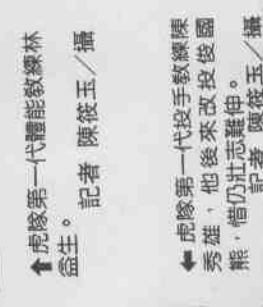 ⬆虎隊第一代體能教練林
益生。
記者 陳筱玉／攝
⬅虎隊第一代投手教練陳
秀雄，他後來改投俊國
熊，惜仍壯志難伸。
記者 陳筱玉／攝